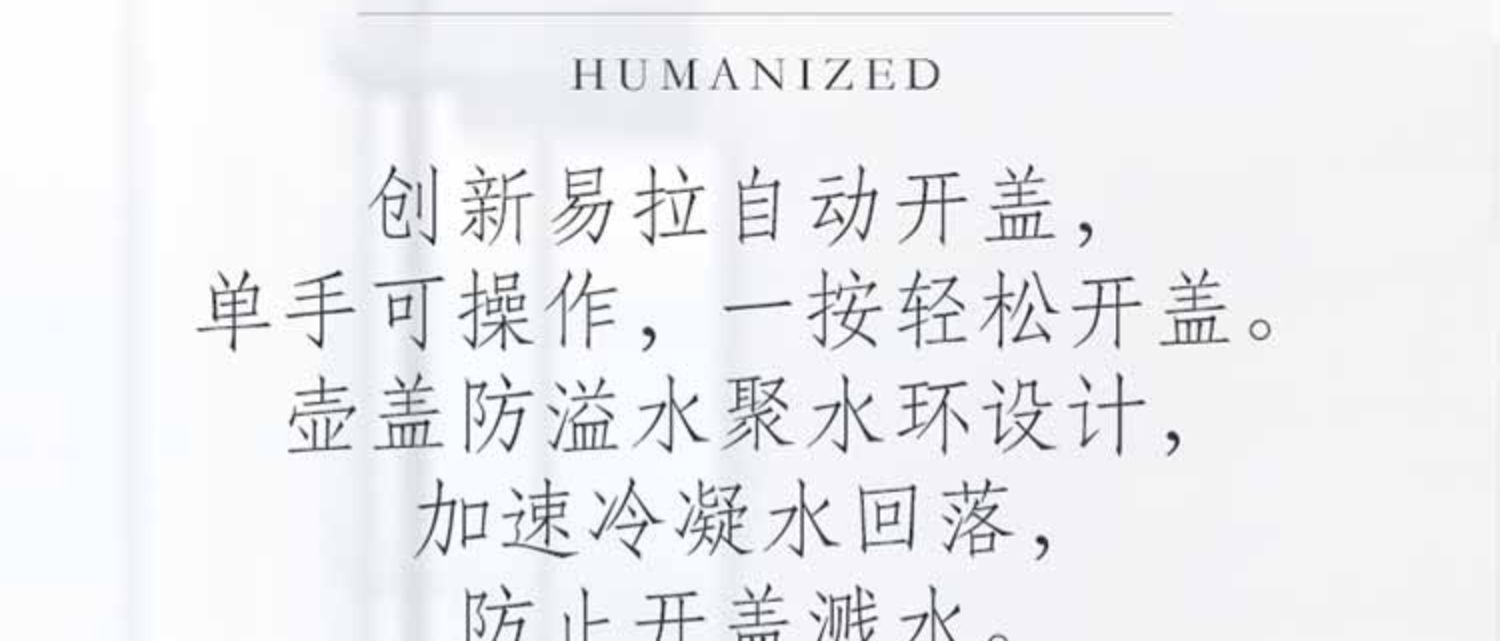 HUMANIZED
创新易拉自动开盖，
单手可操作，一按轻松开盖。
壶盖防溢水聚水环设计，
加速冷凝水回落，
防止开盖溅水。